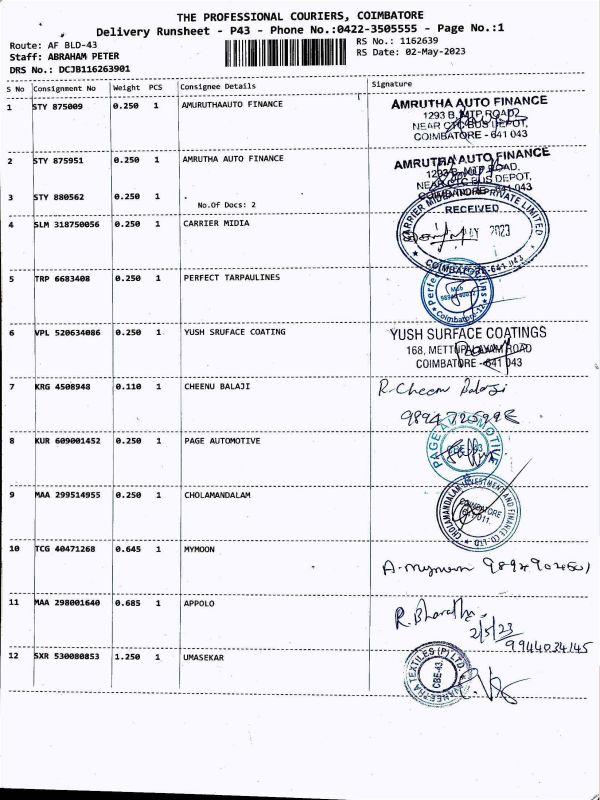 THE PROFESSIONAL COURIERS, COIMBATORE
Delivery Runsheet - P43 - Phone No.:0422-3505555 - Page No.:1
Route: AF BLD-43
RS No.: 1162639
Staff: ABRAHAM PETER
RS Date: 02-May-2023
DRS No.: DCJB116263901
S No Consignment No Weight PCS Consignee Details Signature
1 STY 875009 0.250 1 AMURUTHAAUTO FINANCE
AMRUTHA AUTO FINANCE
1293 B, MTP ROAD
NEAR CTC BUS DEPOT,
COIMBATORE - 641 043
2 STY 875951 0.250 1 AMRUTHA AUTO FINANCE
AMRUTHA AUTO FINANCE
1293 B, MTP ROAD,
NEAR CTC BUS DEPOT,
3 STY 880562 0.250 1 .
No.Of Docs: 2
4 SLM 318750056 0.250 1 CARRIER MIDIA
CARRIER MIDEA INDIA PRIVATE LIMITED
RECEIVED
2023
COIMBATORE-641 043
5 TRP 6683408 0.250 1 PERFECT TARPAULINES
Coimbatore-12
6 VPL 520634086 0.250 1 YUSH SRUFACE COATING
YUSH SURFACE COATINGS
168, METTUPALAYAM ROAD
COIMBATORE - 641 043
7 KRG 4508948 0.110 1 CHEENU BALAJI
R. Cheenu Balaji
8 KUR 609001452 0.250 1 PAGE AUTOMOTIVE
PAGE AUTOMOTIVE
9 MAA 299514955 0.250 1 CHOLAMANDALAM
CHOLAMANDALAM INVESTMENT AND FINANCE CO-LTD
COIMBATORE
10 TCG 40471268 0.645 1 MYMOON
A. mymoon
11 MAA 298001640 0.685 1 APPOLO
R. Bharathi
2/5/23
9944034145
12 SXR 530080853 1.250 1 UMASEKAR
TEXTILES (P) LTD
CBE-43.